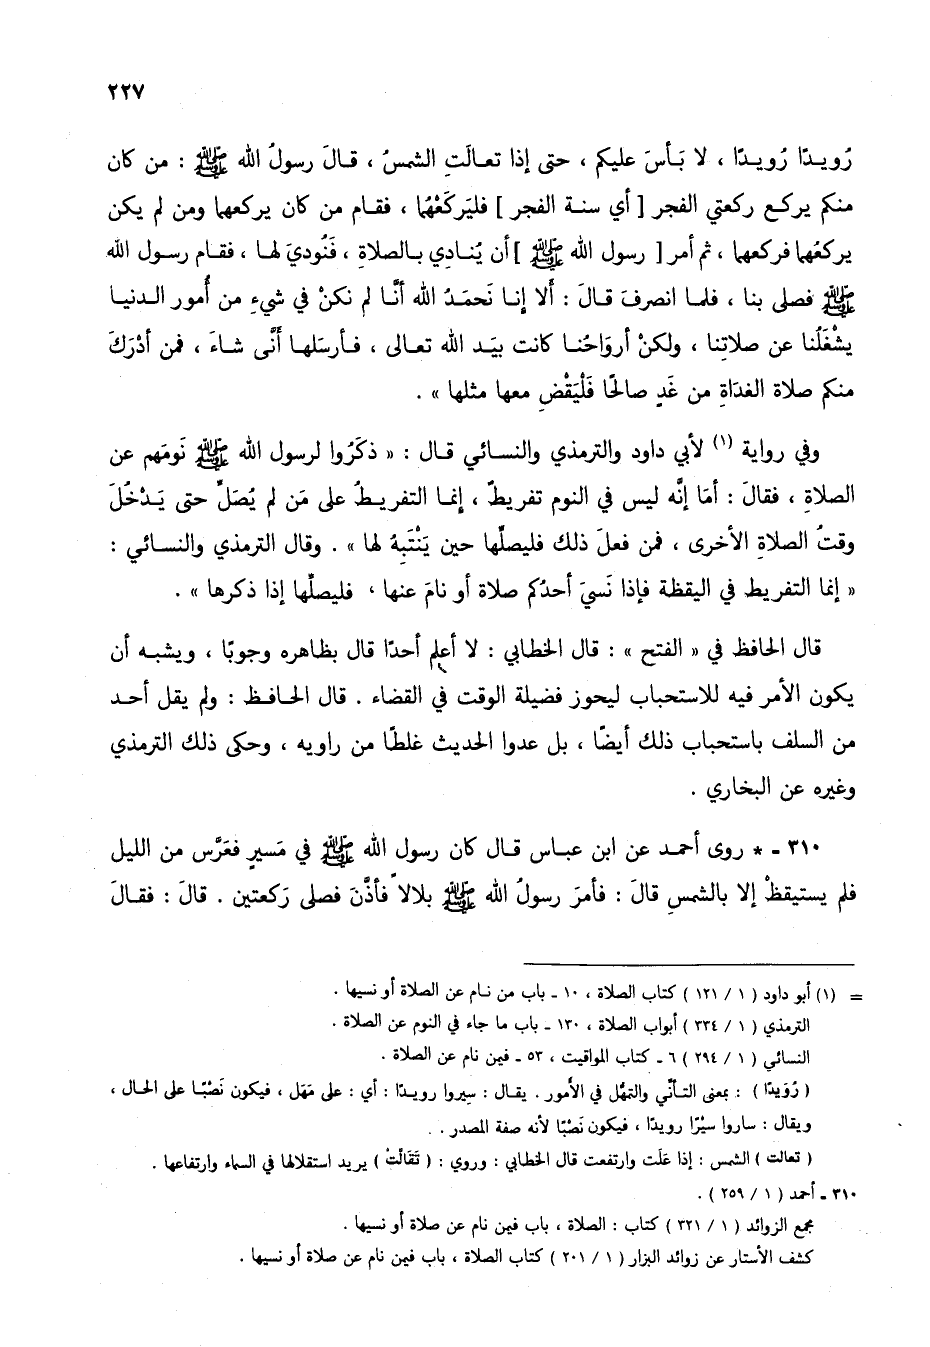 ٢٢٧
رُوَيـدًا رُوَيـدًا ، لا بَـأسَ عليكم ، حتى إذا تعـالَتِ الشمسُ ، قـالَ رسولُ الله ﷺ : من كان
منكم يركـع ركعتي الفجر [ أي سنـة الفجر ] فليَركَعْهُما ، فقـام من كان يركعهما ومن لم يكن
يركعُهما فركعهما ، ثم أمر [ رسول الله ﷺ ] أن يُنـادِي بـالصلاةِ ، فَنُوديَ لهـا ، فقـام رسـول الله
ﷺ فصلى بنا ، فلمـا انصرفَ قـالَ : ألا إنـا نَحمَـدُ الله أنَّـا لم نكنْ في شيءٍ من أُمور الـدنيـا
يشْغَلُنا عن صلاتِنا ، ولكنْ أروَاحُنـا كانت بيَـدِ الله تعـالى ، فـأرسَلهـا أَنَّى شـاءَ ، فمن أدْرَكَ
منكم صلاة الغدَاةِ من غَدٍ صالحًا فَلْيَقْضِ معها مثلها » .
وفي رواية (١) لأبي داود والترمذي والنسـائي قـال : « ذكَرُوا لرسول الله ﷺ نَومَهم عن
الصلاةِ ، فقالَ : أمَا إنَّه ليس في النوم تفريطٌ ، إنمـا التفريـطُ على مَن لم يُصَلِّ حتى يَـدْخُلَ
وقتُ الصلاةِ الأخرى ، فمن فعلَ ذلك فليصلِّها حين يَنْتَبِهُ لها » . وقال الترمذي والنسـائي :
« إنما التفريط في اليقظة فإذا نَسِيَ أحدُكم صلاة أو نامَ عنها ، فليصلِّها إذا ذكرها » .
قال الحافظ في « الفتح » : قال الخطابي : لا أعلم أحدًا قال بظاهره وجوبًا ، ويشبـه أن
يكون الأمر فيه للاستحباب ليحوز فضيلة الوقت في القضاء . قال الحـافـظ : ولم يقل أحـد
من السلف باستحباب ذلك أيضًا ، بل عدوا الحديث غلطًا من راويه ، وحكى ذلك الترمذي
وغيره عن البخاري .
٣١٠ ـ * روى أحمـد عن ابن عبـاس قـال كان رسول الله ﷺ في مَسيرٍ فعَرَّس من الليل
فلم يستيقظْ إلا بالشمسِ قالَ : فأمرَ رسولُ الله ﷺ بلالاً فأذَّنَ فصلى رَكعتين . قالَ : فقـالَ
= (١) أبو داود ( ١ / ١٢١ ) كتاب الصلاة ، ١٠ ـ باب من نـام عن الصلاة أو نسيها .
الترمذي ( ١ / ٣٣٤ ) أبواب الصلاة ، ١٣٠ ـ باب ما جاء في النوم عن الصلاة .
النسائي ( ١ / ٢٩٤ ) ٦ ـ كتاب المواقيت ، ٥٣ ـ فيمن نام عن الصلاة .
( رُوَيدًا ) : بمعنى التـأنِّي والتمهُّل في الأمور . يقـال : سيروا رويـدًا : أي : على مَهَل ، فيكون نَصْبًـا على الحـال ،
ويقال : ساروا سَيْرًا رويدًا ، فيكون نَصْبًا لأنه صفة المصدر .
( تعالت ) الشمس : إذا عَلَت وارتفعت قال الخطابي : وروي : ( تَقَالَّتْ ) يريد استقلالها في السماء وارتفاعها .
٣١٠ ـ أحمد ( ١ / ٢٥٩ ) .
مجمع الزوائد ( ١ / ٣٢١ ) كتاب : الصلاة ، باب فيمن نام عن صلاة أو نسيها .
كشف الأستار عن زوائد البزار ( ١ / ٢٠١ ) كتاب الصلاة ، باب فيمن نام عن صلاة أو نسيها .